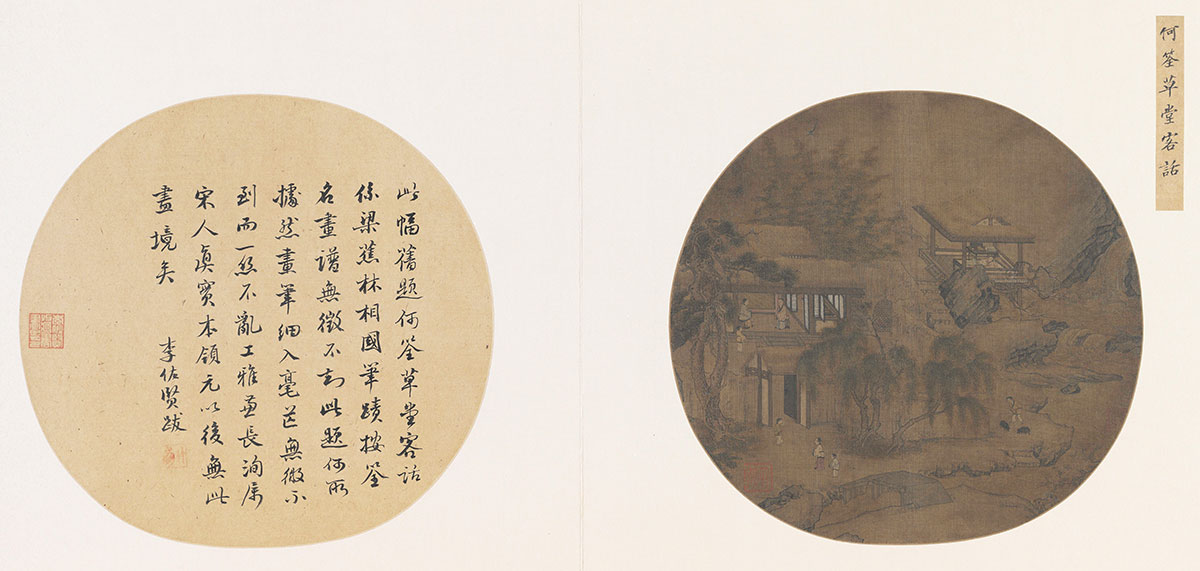 何筌草堂客話
此幅舊題何筌草堂客話
係梁蕉林相國筆蹟按筌
名畫譜無徵不知此題何所
據然畫筆細入毫芒無微不
到而一絲不亂工雅兼長洵屬
宋人眞實本領元以後無此
畫境矣
李佐賢跋